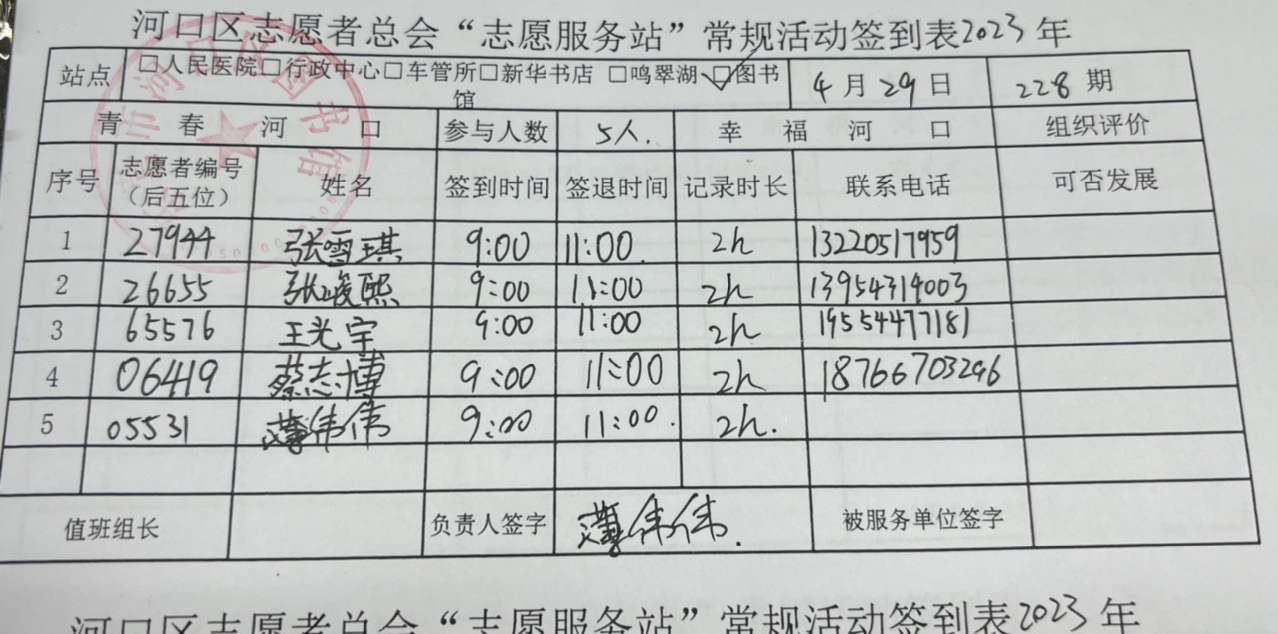 河口区志愿者总会“志愿服务站”常规活动签到表2023年
站点 □人民医院□行政中心□车管所□新华书店 □鸣翠湖☑图书馆 4月29日 228期
青春河口 参与人数 5人. 幸福河口 组织评价
序号 志愿者编号（后五位） 姓名 签到时间 签退时间 记录时长 联系电话 可否发展
1 27944 张雪琪 9:00 11:00. 2h 13220517959
2 26655 张峻熙 9:00 11:00 2h 13954319003
3 65576 王光宇 9:00 11:00 2h 19554477181
4 06419 蔡志博 9:00 11:00 2h 18766703296
5 05531 薄伟伟 9:00 11:00. 2h.
值班组长 负责人签字 薄伟伟. 被服务单位签字
河口区志愿者总会“志愿服务站”常规活动签到表2023年